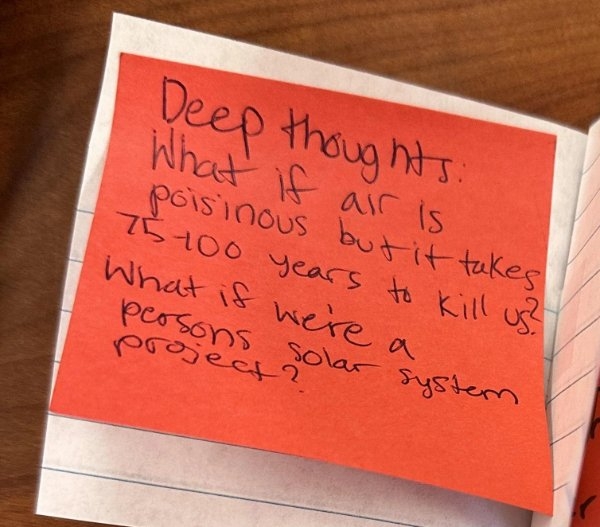 Deep thoughts:
What if air is
poisinous but it takes
75-100 years to kill us?
What if we're a
persons solar system
project?